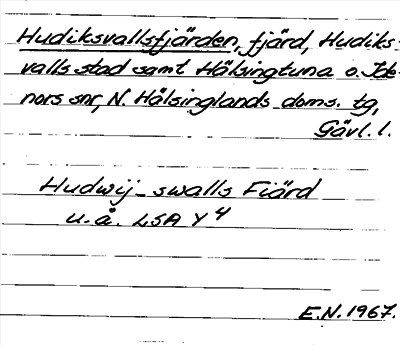 Hudiksvallsfjärden, fjärd, Hudiks-
valls stad samt Hälsingtuna o. Ide-
nors snr, N. Hälsinglands doms. tg,
Gävl. l.
Hudwij-swalls Fiärd
u.å. LSA Y 4
E.N. 1967.